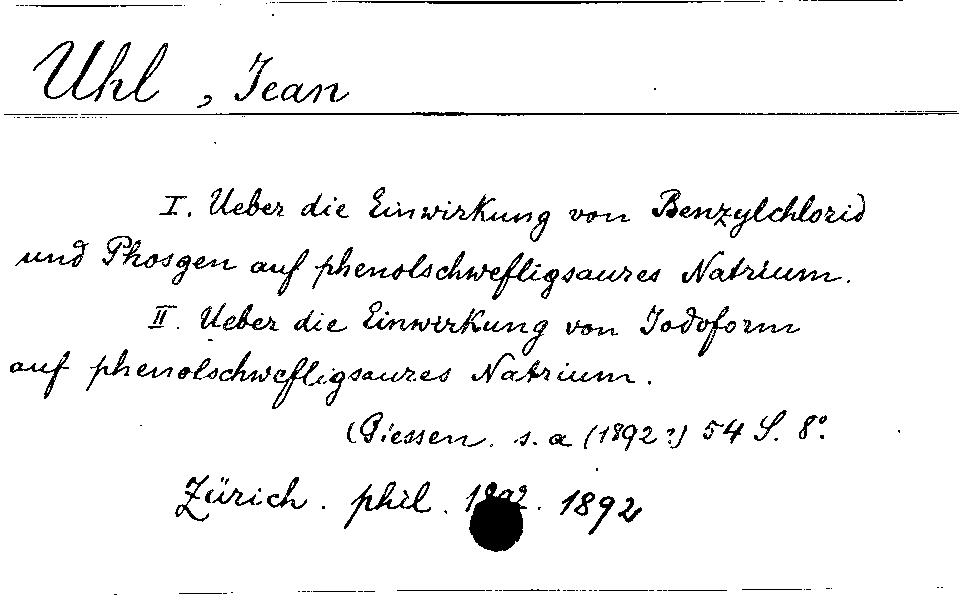 Uhl, Jean
I. Ueber die Einwirkung von Benzylchlorid
und Phosgen auf phenolschwefligsaures Natrium.
II. Ueber die Einwirkung von Jodoform
auf phenolschwefligsaures Natrium.
(Giessen. s. a (1892?) 54 S. 8°.
Zürich. phil. 1892. 1892